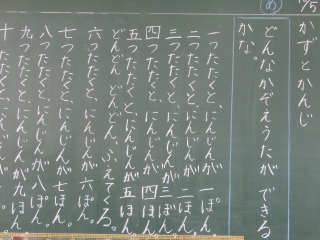 11/5
かずとかんじ
め
どんなかぞえうたが できる
かな。
一つたたくと、にんじんが 一ぽ。
二つたたくと、にんじんが 二ほん。
三つたたくと、にんじんが 三ぼん。
四つたたくと、にんじんが 四ほん。
五つたたくと、にんじんが 五ほん。
どんどん どんどん、ふえてくる。
六つたたくと、にんじんが 六ぽん。
七つたたくと、にんじんが 七ほん。
八つたたくと、にんじんが 八ぽん。
九つたたくと、にんじんが 九ほん。
十